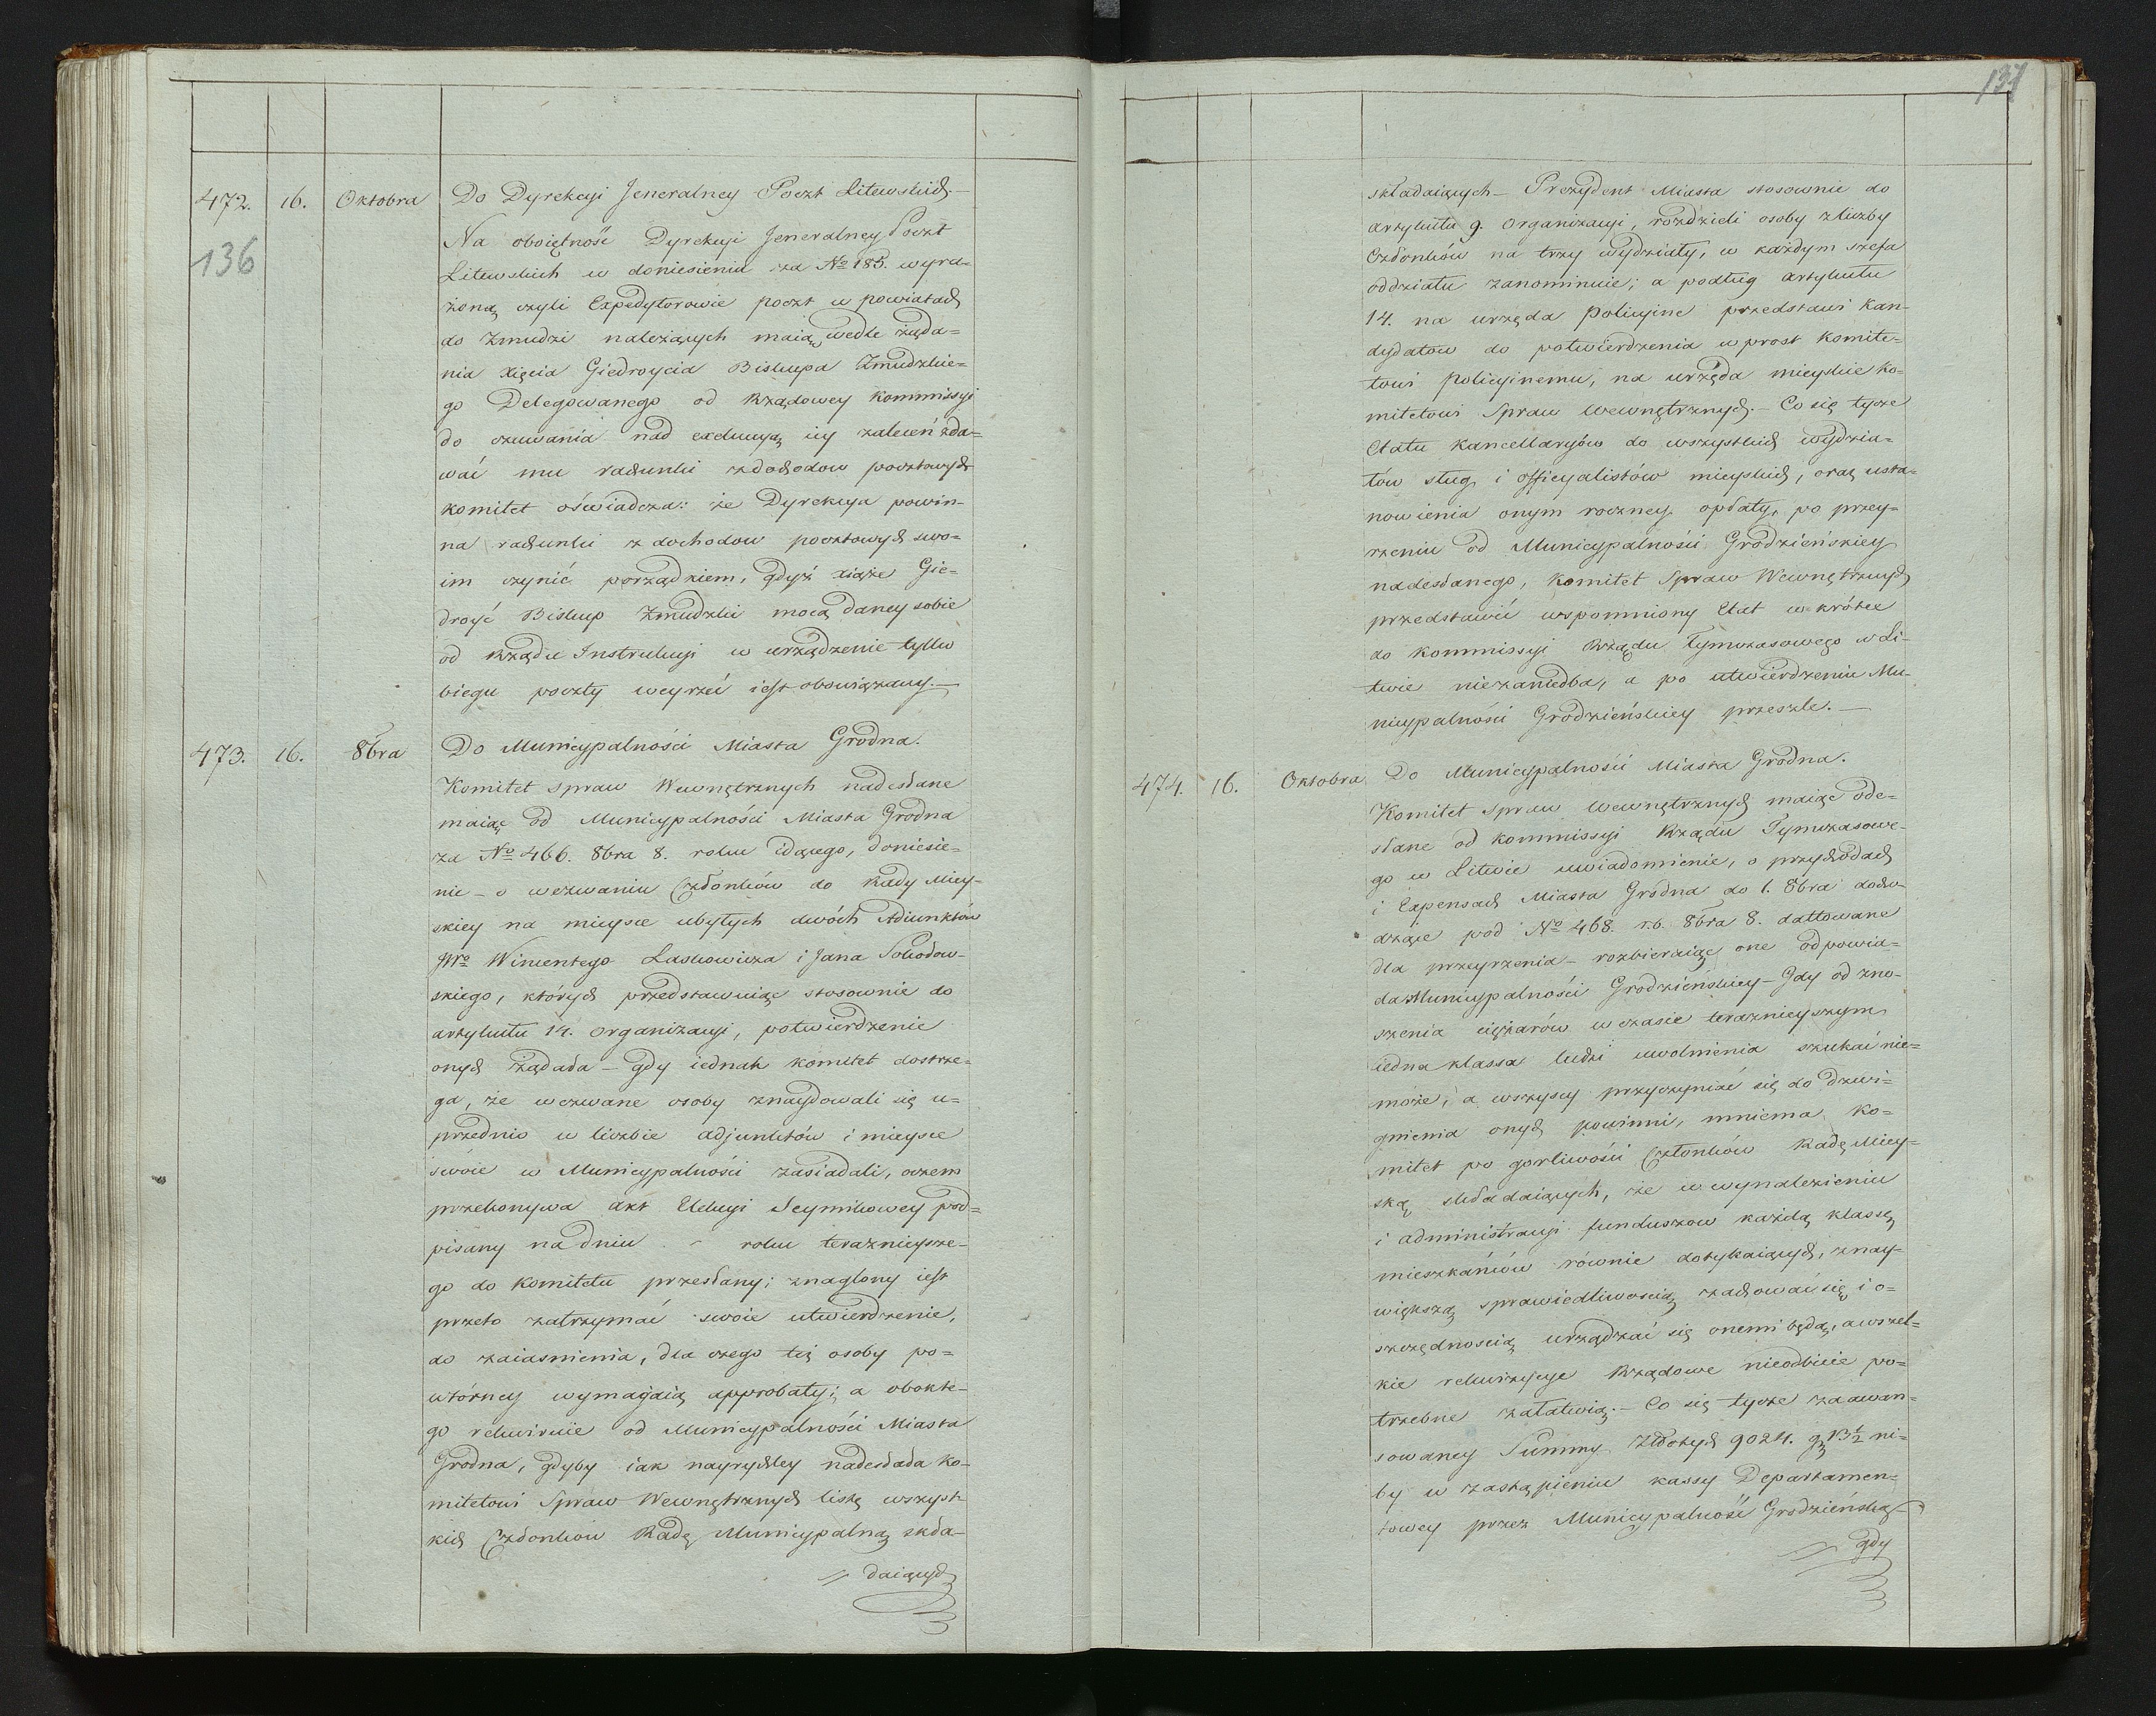 472. 16. Oktobra Do Dyrekcyi Jeneralney Poczt Litewskich.—
136
Na oboiętność Dyrekcyi Jeneralney Poczt
Litewskich w doniesieniu za No 185. wyra-
żoną czyli Expedytorowie poczt w powiatach
do Żmudzi należących maią wedle żąda=
nia xięcia Giedroycia Biskupa Żmudzkie=
go Delegowanego od Rządowey Kommissyi
do czuwania nad exekucyą iey zaleceń zda=
wać mu rachunki z dochodow pocztowych
komitet oświadcza: że Dyrekcya powin-
na rachunki z dochodow pocztowych swo=
im czynić porządkiem, gdyż xiąże Gie=
droyć Biskup Żmudzki mocą daney sobie
od Rządu Instrukcyi w urządzenie tylko
biegu poczty weyrzeć iest obowiązany.—
473. 16. 8bra Do Municypalności Miasta Grodna.
Komitet spraw Wewnętrznych nadesłane
maiąc od Municypalności Miasta Grodna
za No 466. 8bra 8. roku idącego, doniesie=
nie — o wezwaniu Członków do Rady Miey-
skiey na mieysce ubyłych dwóch Adiunktów
JWo Wincentego Laskowicza i Jana Sokodow-
skiego, których przedstawuiąc stosownie do
artykułu 14. organizacyi, potwierdzenie
onych żądała — gdy iednak komitet dostrze=
ga, że wezwane osoby znaydowali się u=
przednio w liczbie adjunktów i mieysce
swoie w Municypalności zasiadali, oczem
przekonywa akt Elekcyi Seymikowey pod=
pisany na dniu - roku teraznieysze-
go do Komitetu przesłany; znaglony iest
przeto zatrzymać swoie utwierdzenie,
do zaiasnienia, dla czego też osoby po=
wtórney wymagaią approbaty; a obokte-
go rekwiruie od Municypalności Miasta
Grodna, gdyby iak nayrychley nadesłała ko-
mitetowi Spraw Wewnętrznych listę wszyst-
kich Członkow Radę Municypalną skła-
daiących
137
składaiących — Prezydent Miasta stosownie do
artykułu 9. organizacyi, rozdzieli osoby z liczby
Członków na trzy wydziały, w każdym szefa
oddziału zanominuie; a podług artykułu
14. na urzęda policyine przedstawi kan-
dydatow do potwierdzenia wprost Komite=
towi policyinemu, na urzęda mieyskie Ko=
mitetowi Spraw Wewnętrznych.— Co się tycze
Etatu kancellaryów do wszystkich wydzia=
łów sług i officyalistów mieyskich, oraz usta=
nowienia onym roczney opłaty, po przey=
rzeniu od Municypalności Grodzieńskiey
nadesłanego, Komitet Spraw Wewnętrznych
przedstawić wspomniony Etat wkrótce
do kommissyi Rządu Tymczasowego w Li-
twie niezaniedba, a po utwierdzeniu Mu-
nicypalności Grodzieńskiey przeszle.—
474. 16. Oktobra Do Municypalności Miasta Grodna.
Komitet Spraw Wewnętrznych maiąc ode=
słane od kommissyi Rządu Tymczasowe-
go w Litwie uwiadomienie, o przychodach
i Expensach Miasta Grodna do 1. 8bra docho-
dzące pod No 468. r.b. 8bra 8. dattowane
dla przeyrzenia — rozbieraiąc one odpowia=
da Municypalności Grodzieńskiey — Gdy od zno-
szenia ciężarów w czasie teraznieyszym
iedna klassa ludzi uwolnienia szukać nie=
może, a wszyscy przyczyniać się do dzwi=
gnienia onych powinni, mniema Ko=
mitet po gorliwości Członków Radę Miey=
ską składaiących, że w wynalezieniu
i administracyi funduszow każdą klassę
mieszkańców równie dotykaiących, znay-
większą sprawiedliwoscią zachować się i o=
szczędnoscią urządzać się onemi będą, a wszel=
kie rekwizycye Rządowe nieodbicie po=
trzebne załatwią.— Co się tycze zaawan=
sowaney Summy Złotych 9024. g. 13½ ni=
by w zastąpieniu kassy Departamen=
towey przez Municypalność Grodzieńską —
gdy